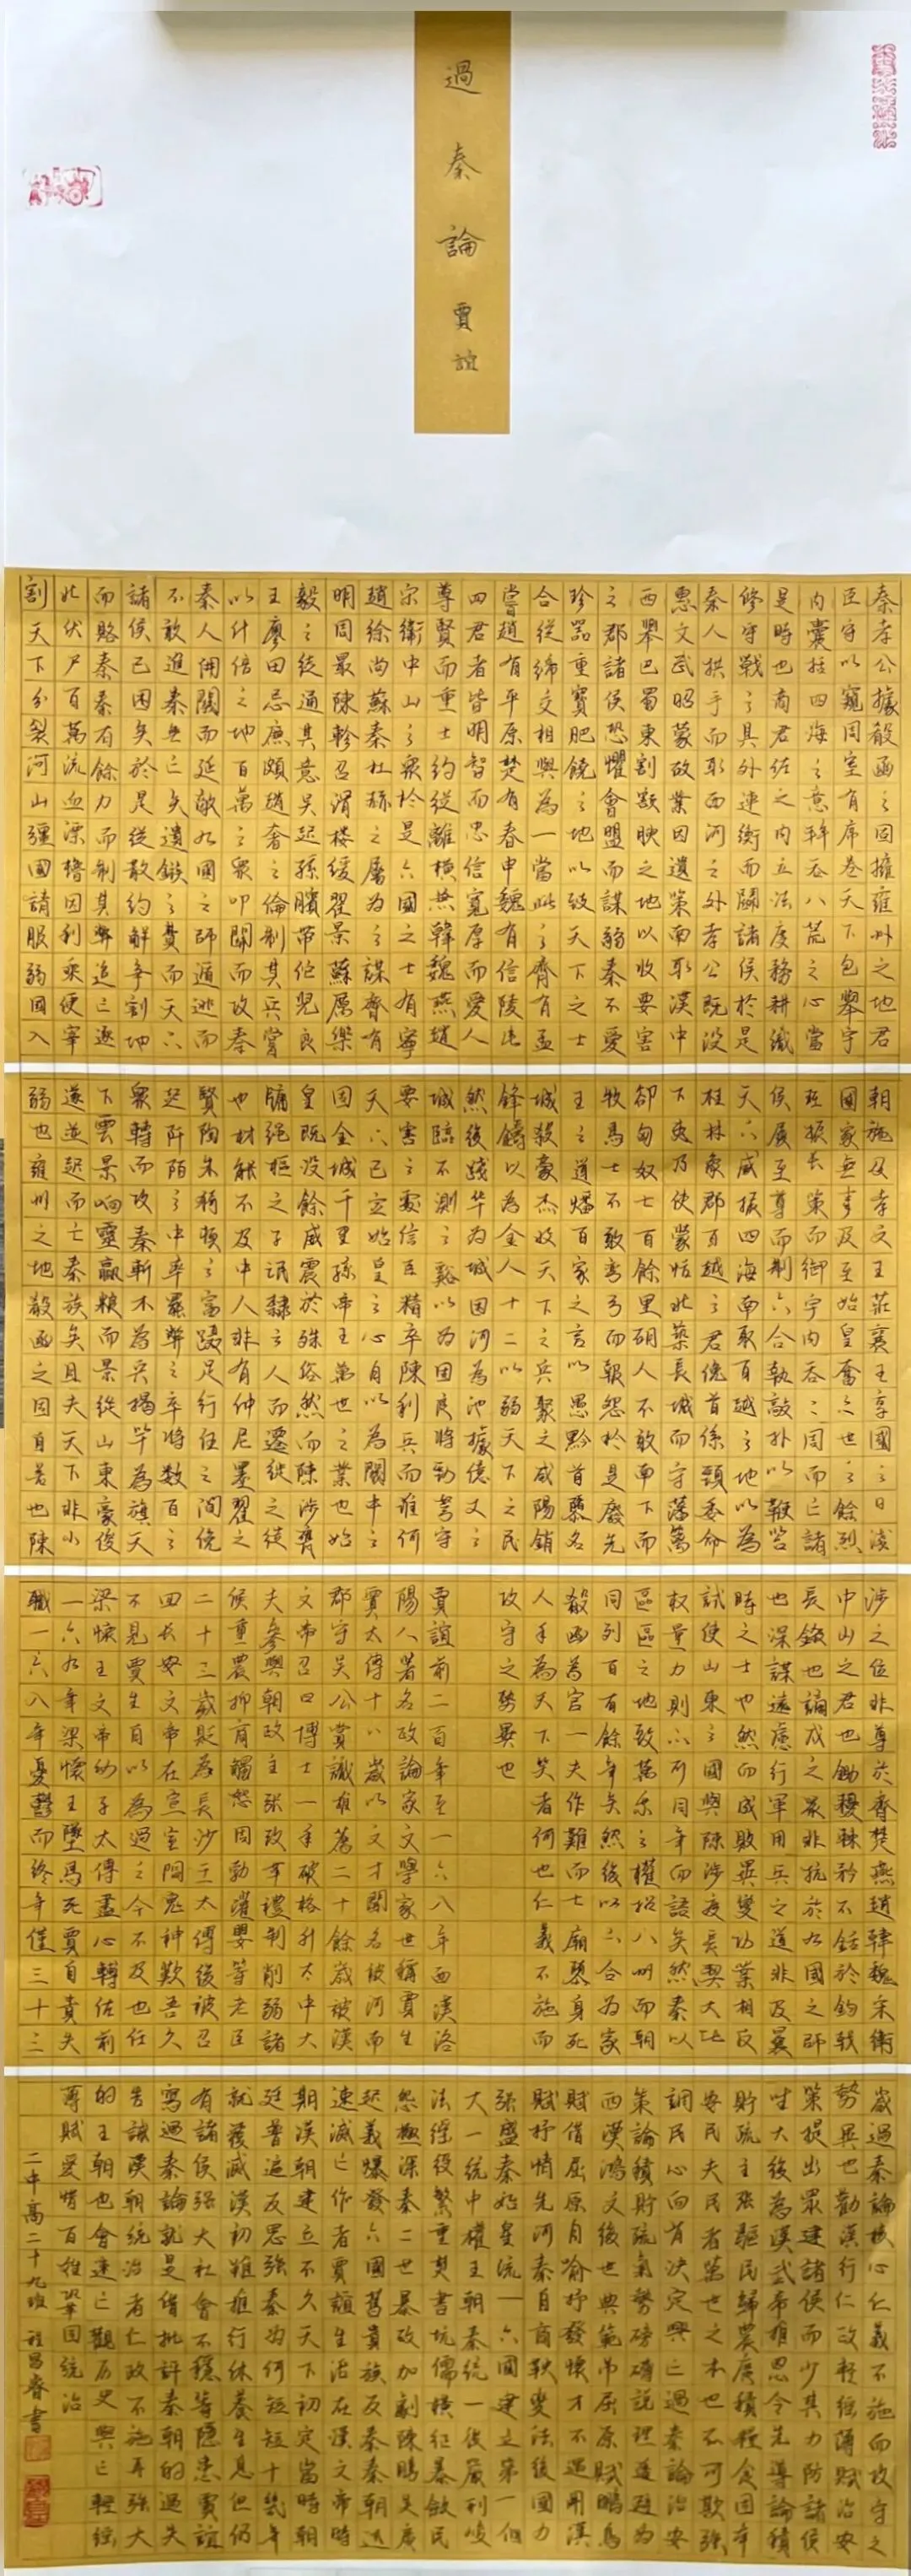 過秦論 賈誼
秦孝公據殽函之固擁雍州之地君
臣守以窺周室有席卷天下包舉宇
內囊括四海之意并吞八荒之心當
是時也商君佐之內立法度務耕織
修守戰之具外連衡而鬬諸侯於是
秦人拱手而取西河之外孝公既沒
惠文武昭蒙故業因遺策南取漢中
西舉巴蜀東割膏腴之地以收要害
之郡諸侯恐懼會盟而謀弱秦不愛
珍器重寶肥饒之地以致天下之士
合從締交相與為一當此之齊有孟
嘗趙有平原楚有春申魏有信陵此
四君者皆明智而忠信寬厚而愛人
尊賢而重士約從離橫兼韓魏燕趙
宋衛中山之眾於是六國之士有寧
趙徐尚蘇秦杜赫之屬為之謀齊有
明周最陳軫召滑樓緩翟景蘇厲樂
毅之徒通其意吳起孫臏帶佗兒良
王廖田忌廉頗趙奢之倫制其兵嘗
以什倍之地百萬之眾叩關而攻秦
秦人開關而延敵九國之師遁逃而
不敢進秦無亡矢遺鏃之費而天下
諸侯已困矣於是從散約解爭割地
而賂秦秦有餘力而制其弊追亡逐
北伏尸百萬流血漂櫓因利乘便宰
割天下分裂河山彊國請服弱國入
朝施及孝文王莊襄王享國之日淺
國家無事及至始皇奮六世之餘烈
振長策而御宇內吞二周而亡諸
侯履至尊而制六合執敲扑以鞭笞
天下威振四海南取百越之地以為
桂林象郡百越之君俛首係頸委命
下吏乃使蒙恬北築長城而守藩籬
卻匈奴七百餘里胡人不敢南下而
牧馬士不敢彎弓而報怨於是廢先
王之道燔百家之言以愚黔首隳名
城殺豪杰收天下之兵聚之咸陽銷
鋒鑄以為金人十二以弱天下之民
然後踐华為城因河為池據億丈之
城臨不測之谿以為固良將勁弩守
要害之處信臣精卒陳利兵而誰何
天下已定始皇之心自以為關中之
固金城千里孫帝王萬世之業也始
皇既沒餘威震於殊俗然而陳涉甕
牖绳樞之子氓隸之人而遷徙之徒
也材能不及中人非有仲尼墨翟之
賢陶朱猗頓之富躡足行伍之間俛
起阡陌之中率罷弊之卒將數百之
眾轉而攻秦斬木為兵揭竿為旗天
下雲景响靈贏糧而景從山東豪俊
遂並起而亡秦族矣且夫天下非小
弱也雍州之地殽函之固自若也陳
涉之位非尊於齊楚燕趙韓魏宋衛
中山之君也鋤耰棘矜不銛於鈎戟
長鎩也謫戍之眾非抗於九國之師
也深謀遠慮行軍用兵之道非及曩
時之士也然而成敗異變功業相反
試使山東之國與陳涉度長絜大比
权量力則不可同年而語矣然秦以
區區之地致萬乘之權招八州而朝
同列百有餘年矣然後以六合為家
殽函為宮一夫作難而七廟隳身死
人手為天下笑者何也仁義不施而
攻守之勢異也
賈誼前二百年至一六八年西漢洛
陽人著名政論家文學家世稱賈生
賈太傅十八歲以文才聞名被河南
郡守吳公賞識雄薦二十餘歲被漢
文帝召曰博士一年破格升太中大
夫參與朝政主張改革禮制削弱諸
侯重農抑商觸怒周勃灌嬰等老臣
二十三歲貶為長沙王太傅後被召
回長安文帝在宣室問鬼神歎吾久
不見賈生自以為過之今不及也任
梁懷王文帝幼子太傅盡心轉佐前
一六九年梁懷王墜馬死賈自責失
職一六八年憂鬱而終年僅三十三
歲過秦論核心仁義不施而攻守之
勢異也勸漢行仁政輕徭薄賦治安
策提出眾建諸侯而少其力防諸侯
坐大後為漢武帝推恩令先導論積
貯疏主張驅民歸農廣積糧食固本
安民夫民者萬世之本也不可欺强
調民心向背決定興亡過秦論治安
策論積貯疏氣勢磅礴說理透為
西漢鴻文後世典範弔屈原賦鵩鳥
賦借屈原自喻抒發懷才不遇開漢
賦抒情先河秦自商鞅變法後國力
强盛秦始皇統一六國建立第一個
大一統中權王朝秦統一後嚴刑峻
法徭役繁重焚書坑儒橫征暴斂民
怨極深秦二世暴政加劇陳勝吳廣
起義爆發六國舊貴族反秦秦朝迅
速滅亡作者賈誼生活在漢文帝時
期漢朝建立不久天下初定當時朝
廷普遍反思强秦為何短短十幾年
就覆滅漢初雖推行休養生息但仍
有諸侯强大社會不穩等隱患賈誼
寫過秦論就是借批評秦朝的過失
告誡漢朝統治者仁政不施再强大
的王朝也會速亡觀历史興亡輕徭
薄賦愛惜百姓鞏固統治
二中高二十九班 程昌睿書